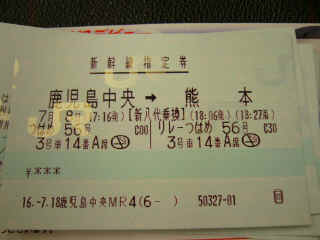 新幹線指定券
鹿児島中央 → 熊本
7月 8日 (17:16発) [新八代乗換] (18:06発) (18:27着)
つばめ 56号 C00 リレーつばめ 56号 C30
3号車 14番 A席 3号車 14番 A席
¥***
16.-7.18鹿児島中央MR4(6- ) 50327-01